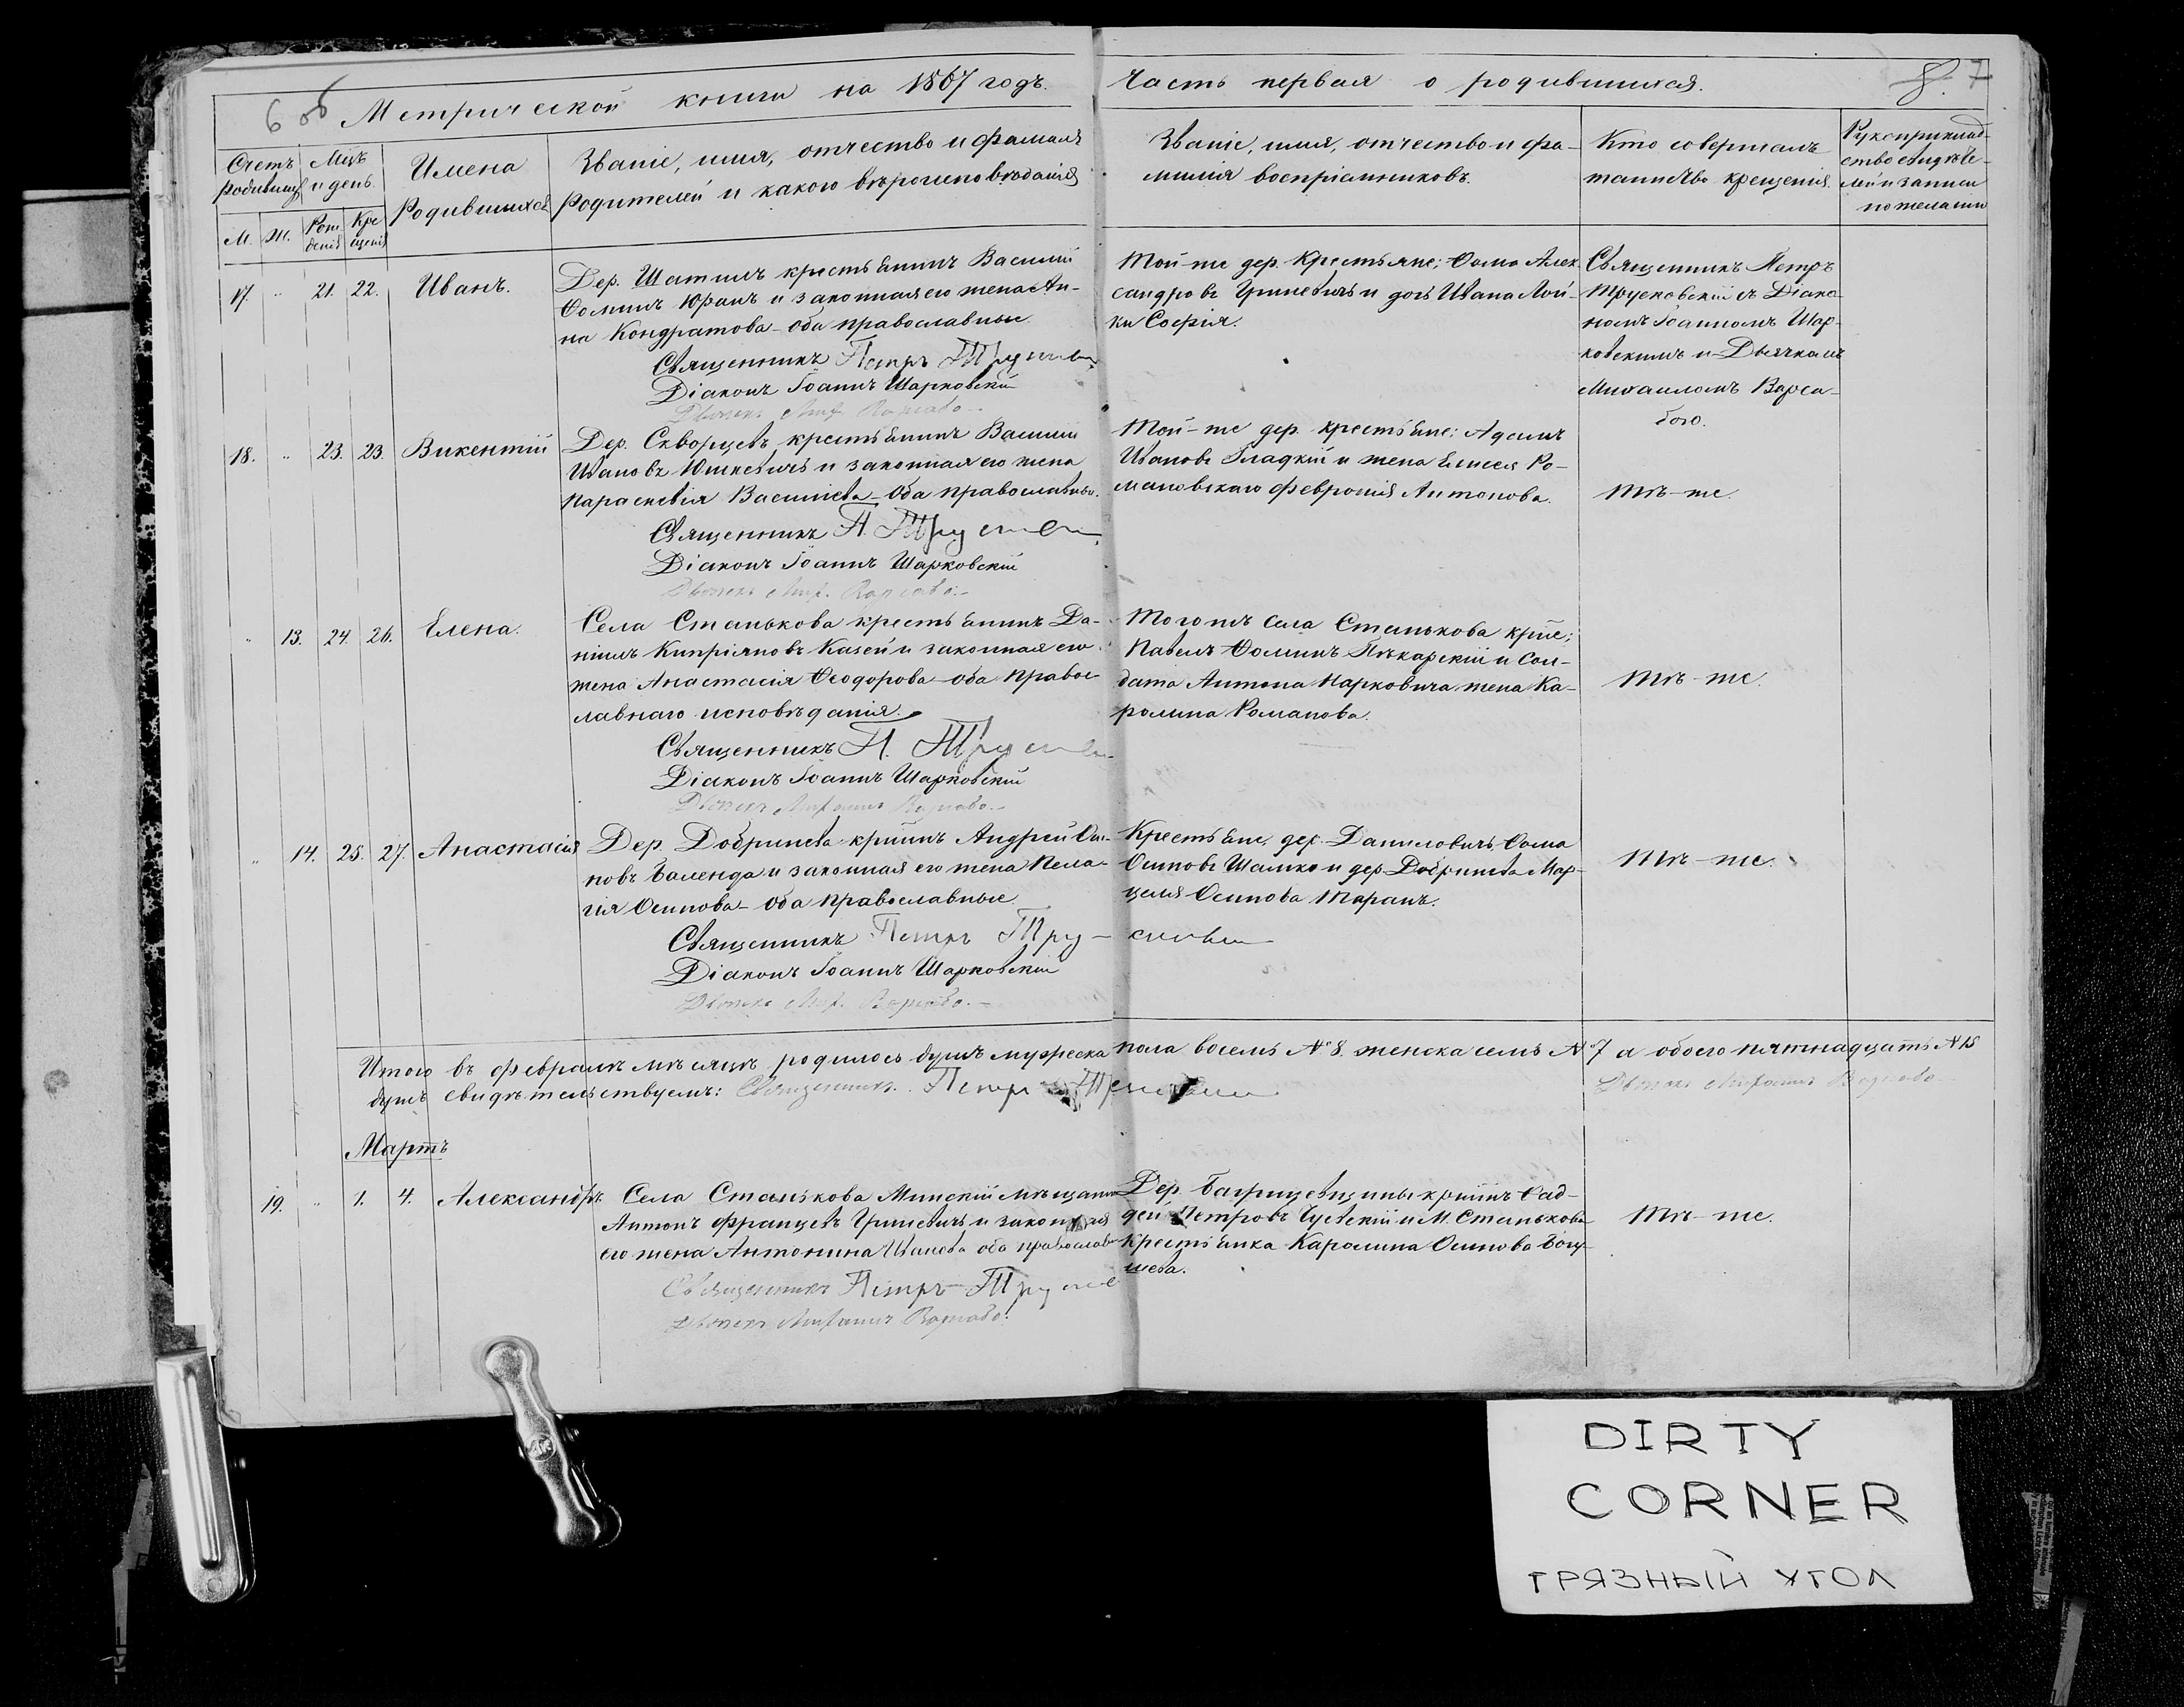 6 об Метрической книги на 1867 годъ. Часть первая о родившихся. 8. 7
Счетъ родившихся
М. Ж.
Мцъ и день
Рождения Крещенія
Имена
Родившихся
Званіе, имя, отчество и фамилія
родителей и какого вѣроисповѣданія
Званіе, имя, отчество и фа-
милія воспріемниковъ.
Кто совершалъ
таинство крещенія.
Рукоприклад-
ство свидѣте-
лей и записи
по желанію
17. " 21. 22. Иванъ.
Дер. Шатилъ крестьянинъ Василій
Ѳоминъ Юранъ и законная его жена Ан-
на Кондратова - оба православные
Священникъ Петръ
Діаконъ Іоаннъ Шарковскій
Той-же дер. Крестьяне; Ѳома Алек-
сандровъ Гриневичъ и дочь Ивана Лой-
ки Софія.
Священникъ Петръ
Трусковскій съ Діако-
номъ Іоанномъ Шар-
ковскимъ и Дьячкомъ
Михаиломъ Варса-
бою.
18. " 23. 23. Викентій
Дер. Скворцевъ крестьянинъ Василій
Ивановъ Юшкевичъ и законная его жена
Параскевія Васильева - Оба православные.
Священникъ П.
Діаконъ Іоаннъ Шарковскій
Той-же дер. крестьяне: Адамъ
Ивановъ Гладкій и жена Елисея Ро-
мановскаго Февронія Антонова.
Тѣ-же.
" 13. 24. 26. Елена.
Села Станькова крестьянинъ Да-
ніилъ Кипріяновъ Казей и законная его
жена Анастасія Ѳеодорова - оба правос-
лавнаго исповѣданія.
Священникъ П.
Діаконъ Іоаннъ Шарковскій
Тогожъ села Станькова крне;
Павелъ Ѳоминъ Пѣкарскій и сол-
дата Антона Нарковича жена Ка-
ролина Романова.
Тѣ-же.
" 14. 25. 27. Анастасія
Дер. Добринева крнинъ Андрей Оси-
повъ Баленда и законная его жена Пела-
гія Осипова - Оба православные
Священникъ Петръ
Діаконъ Іоаннъ Шарковскій
Крестьяне, дер. Даниловичъ Ѳома
Осиповъ Шашко и дер. Добринева Мар-
целя Осипова Таранъ.
Тѣ-же.
Итого въ февралѣ мѣсяцѣ родилось душъ мужеска пола восемь № 8. женска семь № 7 а обоего пятнадцать № 15
душъ свидѣтельствуемъ: Священникъ Петръ
Мартъ
19. " 1. 4. Александръ.
Села Станькова Минскій мѣщанинъ
Антонъ Францевъ Гриневичъ и законная
его жена Антонина Иванова оба православн
Священникъ Петръ
Дер. крнинъ Ѳад-
дей Петровъ Гуевскій и М. Станькова
Крестьянка Каролина Осипова Богу-
шева.
Тѣ-же.
DIRTY
CORNER
ГРЯЗНЫЙ УГОЛ